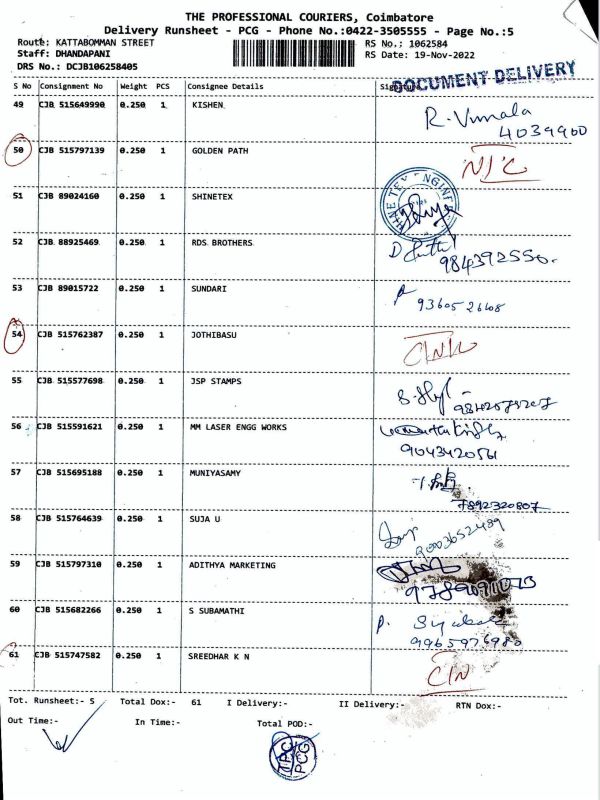 THE PROFESSIONAL COURIERS, Coimbatore
Delivery Runsheet - PCG - Phone No.:0422-3505555 - Page No.:5
Route: KATTABOMMAN STREET RS No.: 1062584
Staff: DHANDAPANI RS Date: 19-Nov-2022
DRS No.: DCJB106258405
DOCUMENT DELIVERY
S No Consignment No Weight PCS Consignee Details
49 CJB 515649990 0.250 1 KISHEN R. Vimala
4039900
50 CJB 515797139 0.250 1 GOLDEN PATH N/C
51 CJB 89024160 0.250 1 SHINETEX
52 CJB 88925469 0.250 1 RDS BROTHERS
984392550.
53 CJB 89015722 0.250 1 SUNDARI
9360526608
54 CJB 515762387 0.250 1 JOTHIBASU
55 CJB 515577698 0.250 1 JSP STAMPS
56 CJB 515591621 0.250 1 MM LASER ENGG WORKS
9043420561
57 CJB 515695188 0.250 1 MUNIYASAMY
7892320807
58 CJB 515764639 0.250 1 SUJA U
9003652489
59 CJB 515797310 0.250 1 ADITHYA MARKETING
60 CJB 515682266 0.250 1 S SUBAMATHI
9965976980
61 CJB 515747582 0.250 1 SREEDHAR K N
Tot. Runsheet:- 5 Total Dox:- 61 I Delivery:- II Delivery:- RTN Dox:-
Out Time:- In Time:- Total POD:-
TPC
PCG